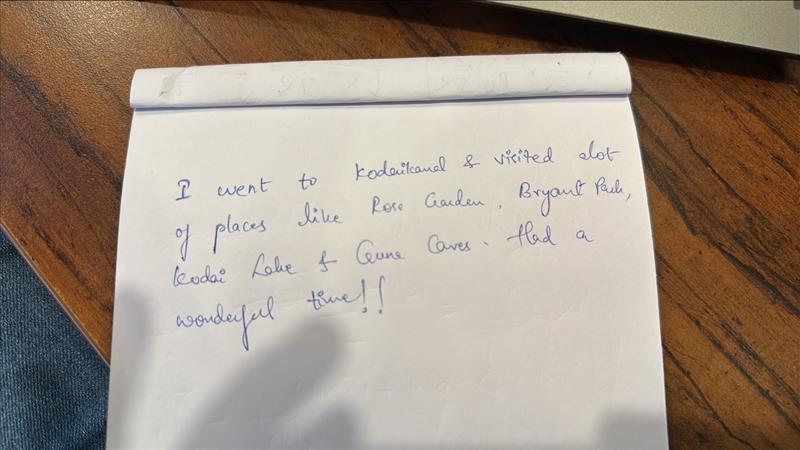 I went to Kodaikanal & visited alot
of places like Rose Garden, Bryant Park,
Kodai Lake & Gune Caves. Had a
wonderful time!!